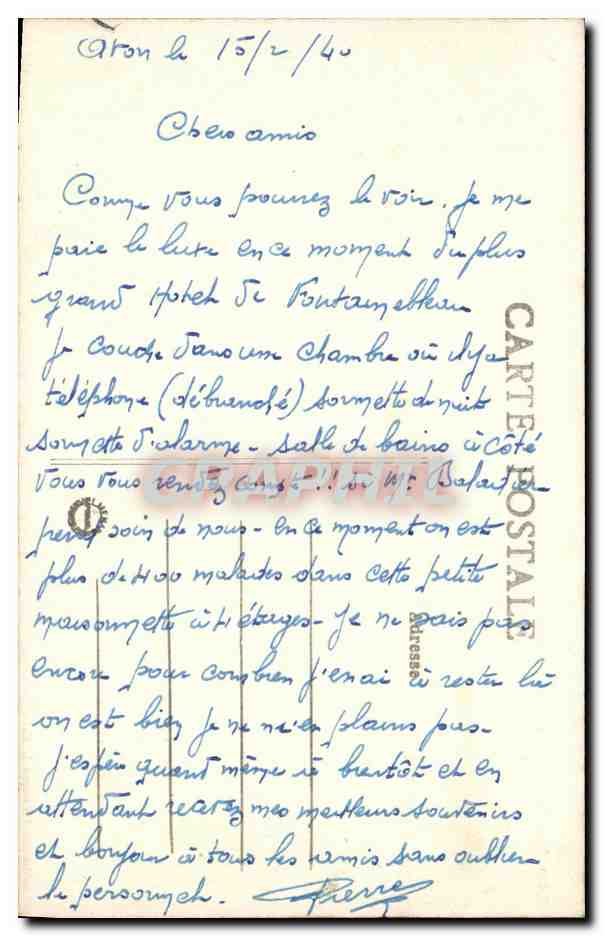 Avon le 15/2/40
Chers amis
Comme vous pouvez le voir, je me
paie le luxe en ce moment du plus
grand Hotel de Fontainebleau
Je couche dans une chambre où il y a
téléphone (débranché) sonnette de nuit
sonnette d'alarme - salle de bains à côté
Vous vous rendez compte!! si Mr Baladier
prend soin de nous - en ce moment on est
plus de 400 malades dans cette petite
maisonnette à 4 étages - Je ne sais pas
encore pour combien j'en ai à rester ici
on est bien je ne m'en plains pas -
J'espère quand même à bientôt et en
attendant recevez mes meilleurs souvenirs
et bonjour à tous les amis sans oublier
le personnel. Pierre
CARTE POSTALE
Adresse
CRAPHIL